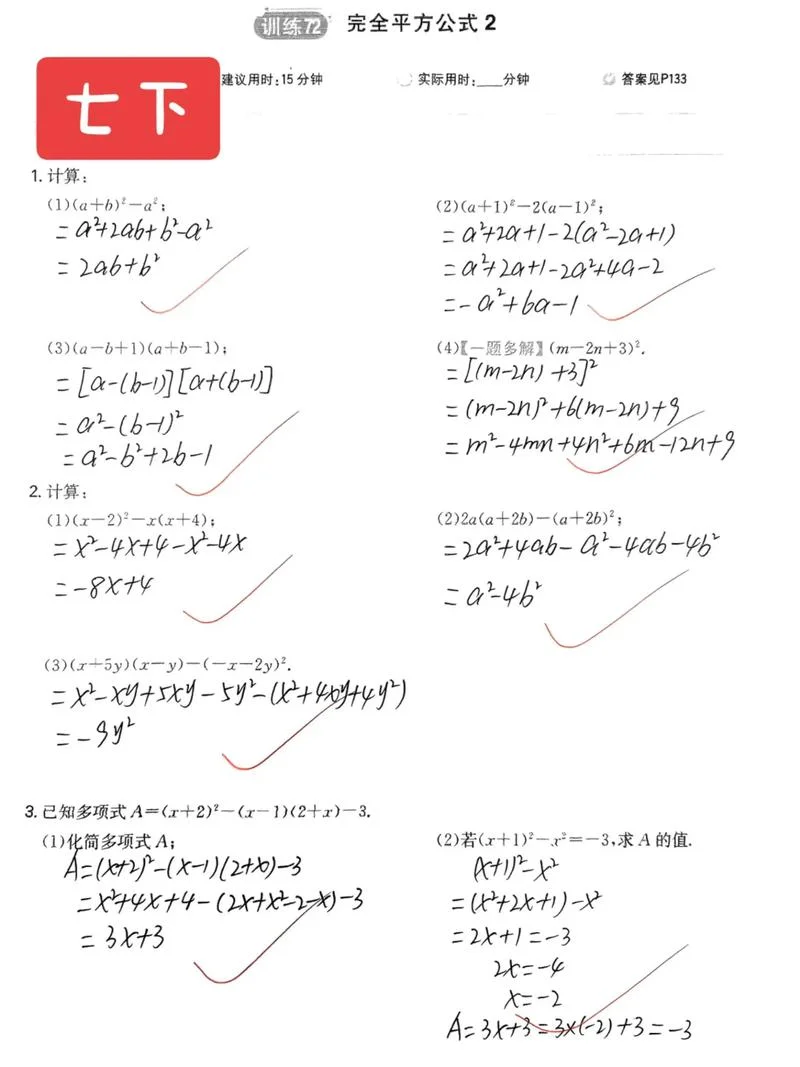 训练72 完全平方公式2
七下
建议用时:15分钟 实际用时:____分钟 答案见P133
1. 计算:
(1)(a+b)²-a²;
=a²+2ab+b²-a²
=2ab+b²
(2)(a+1)²-2(a-1)²;
=a²+2a+1-2(a²-2a+1)
=a²+2a+1-2a²+4a-2
=-a²+6a-1
(3)(a-b+1)(a+b-1);
=[a-(b-1)][a+(b-1)]
=a²-(b-1)²
=a²-b²+2b-1
(4)【一题多解】(m-2n+3)².
=[(m-2n)+3]²
=(m-2n)²+6(m-2n)+9
=m²-4mn+4n²+6m-12n+9
2. 计算:
(1)(x-2)²-x(x+4);
=x²-4x+4-x²-4x
=-8x+4
(2)2a(a+2b)-(a+2b)²;
=2a²+4ab-a²-4ab-4b²
=a²-4b²
(3)(x+5y)(x-y)-(-x-2y)².
=x²-xy+5xy-5y²-(x²+4xy+4y²)
=-9y²
3. 已知多项式A=(x+2)²-(x-1)(2+x)-3.
(1)化简多项式A;
A=(x+2)²-(x-1)(2+x)-3
=x²+4x+4-(2x+x²-2-x)-3
=3x+3
(2)若(x+1)²-x²=-3,求A的值.
(x+1)²-x²
=(x²+2x+1)-x²
=2x+1=-3
2x=-4
x=-2
A=3x+3=3×(-2)+3=-3